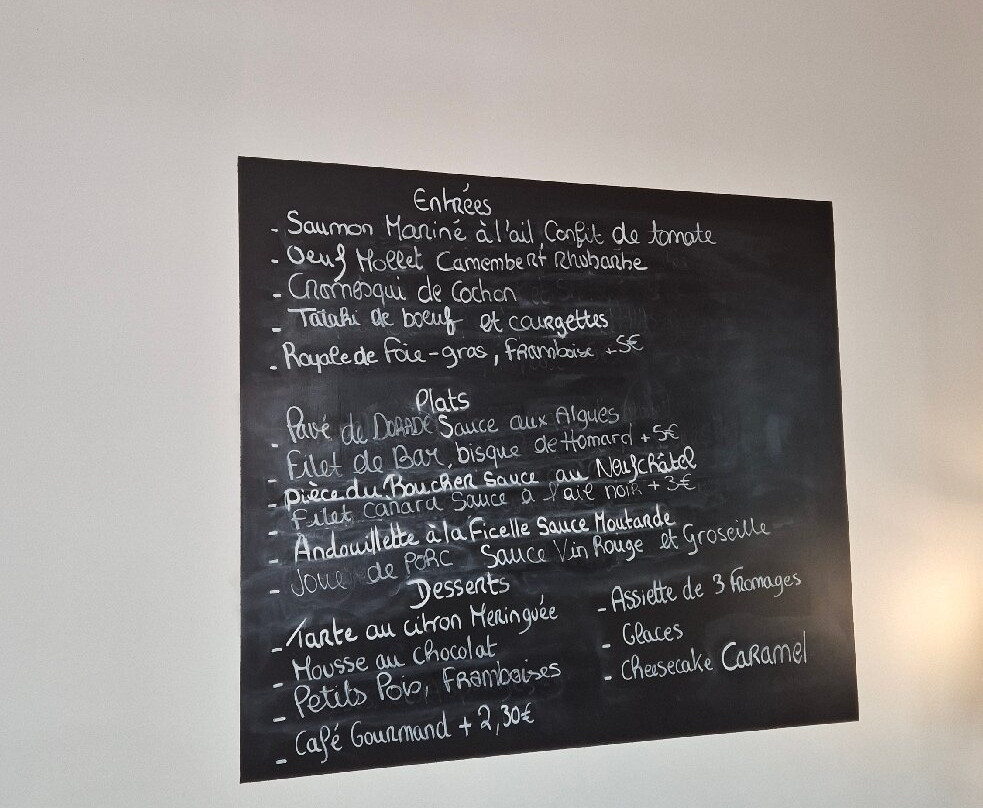 Entrées
- Saumon Mariné à l'ail, Confit de tomate
- Oeuf Mollet Camembert Rhubarbe
- Cromesqui de Cochon
- Tataki de boeuf et courgettes
- Royale de Foie-gras, framboise +5€
Plats
- Pavé de DORADE Sauce aux Algues
- Filet de Bar, bisque de Homard +5€
- pièce du Boucher sauce au Neufchâtel
- Filet canard Sauce à l'ail noir +3€
- Andouillette à la Ficelle Sauce Moutarde
- Joue de PORC Sauce Vin Rouge et Groseille
Desserts
- Tarte au citron Meringuée
- Mousse au chocolat
- Petits Pois, FRamboises
- Café Gourmand + 2,30€
- Assiette de 3 Fromages
- Glaces
- Cheesecake CARAMEL